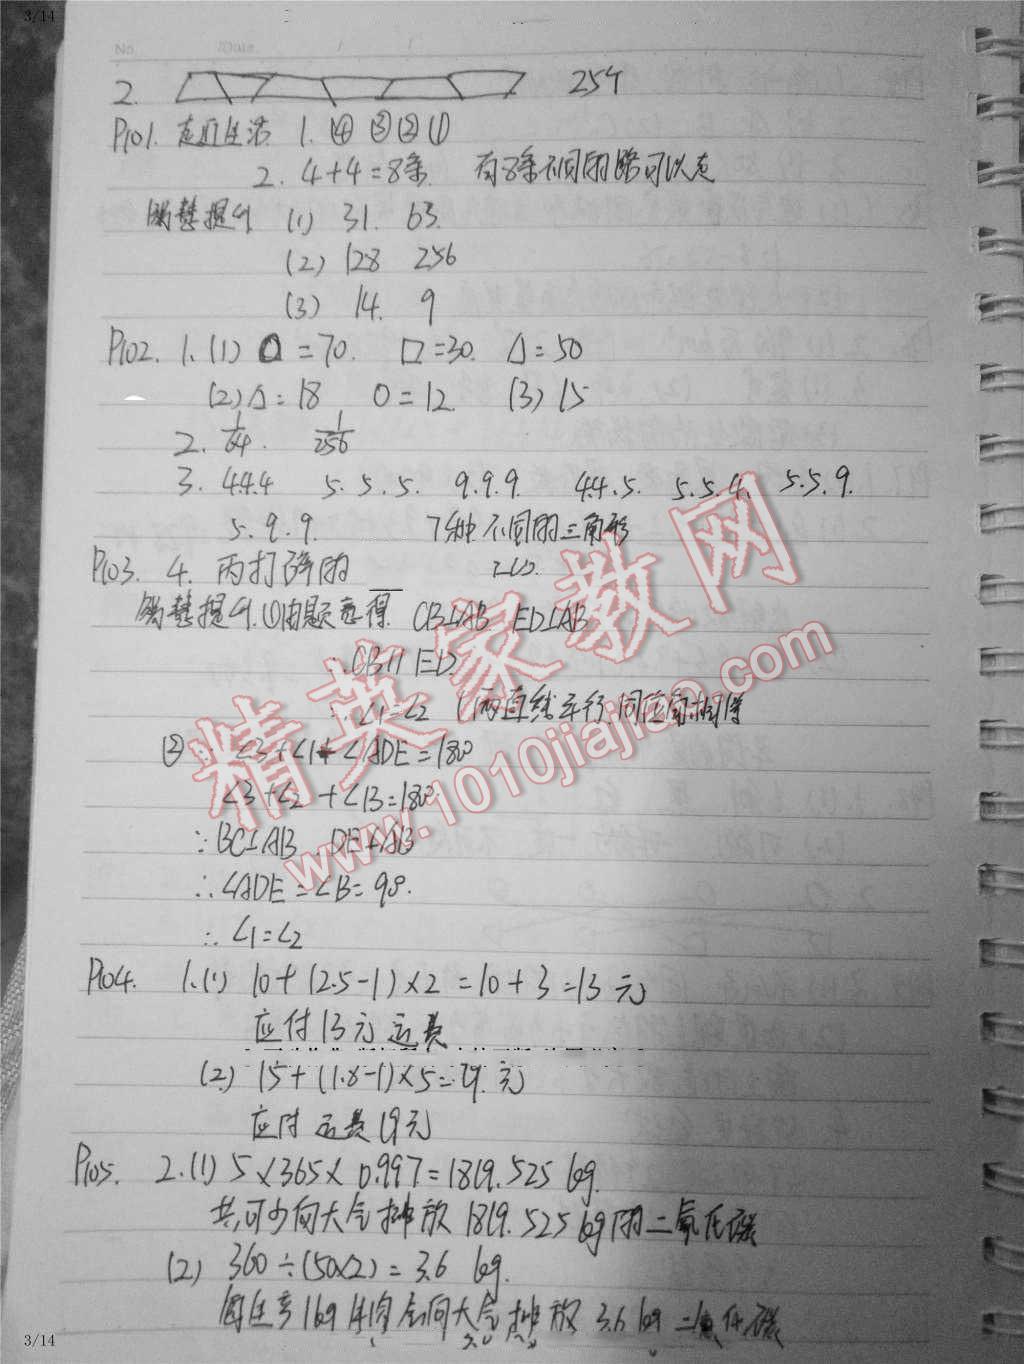 3/14
No.  Date.
2.  254
P101. 走近生活 1. ④ ③ ② ①
2. 4+4=8条. 有8条不同的路可以走
(1) 31. 63.
(2) 128 256
(3) 14. 9
P102. 1. (1) =70. □=30. △=50
(2) △=18 O=12. (3) 15
2. 1/64. 1/256
3. 4.4.4 5.5.5. 9.9.9. 4.4.5. 5.5.4. 5.5.9.
5.9.9. 7种不同的三角形
P103. 4. 丙打碎的
(1)由题意得. CB⊥AB ED⊥AB
∴CB∥ED.
∴∠1=∠2 (两直线平行 同位角相等
② ∵ ∠3+∠1+∠ADE=180
∠3+∠2+∠B=180.
∵BC⊥AB. DE⊥AB
∴∠ADE=∠B=90.
∴∠1=∠2
P104. 1. (1) 10+(2.5-1)×2=10+3=13元
应付13元运费
(2) 15+(1.8-1)×5=19.元
应付运费19元
P105. 2. (1) 5×365×0.997=1819.525 kg.
共可少向大气排放1819.525kg的二氧化碳
(2) 360÷(50×2)=3.6 kg.
生产1kg牛肉会向大气排放3.6kg二氧化碳
精英家教网
www.1010jiajiao.com
3/14